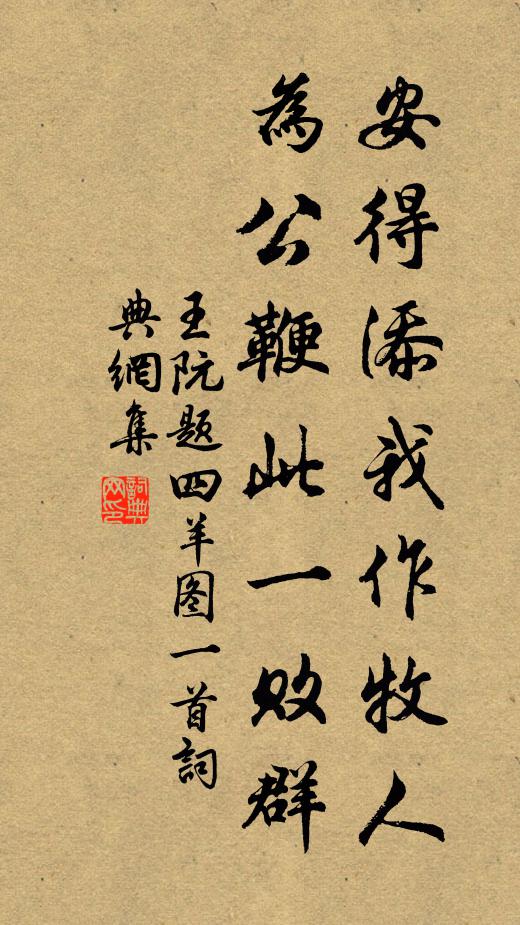 安得添我作牧人
為公鞭此一败群
王阮题四羊图一首詞
典網集
詞典网印